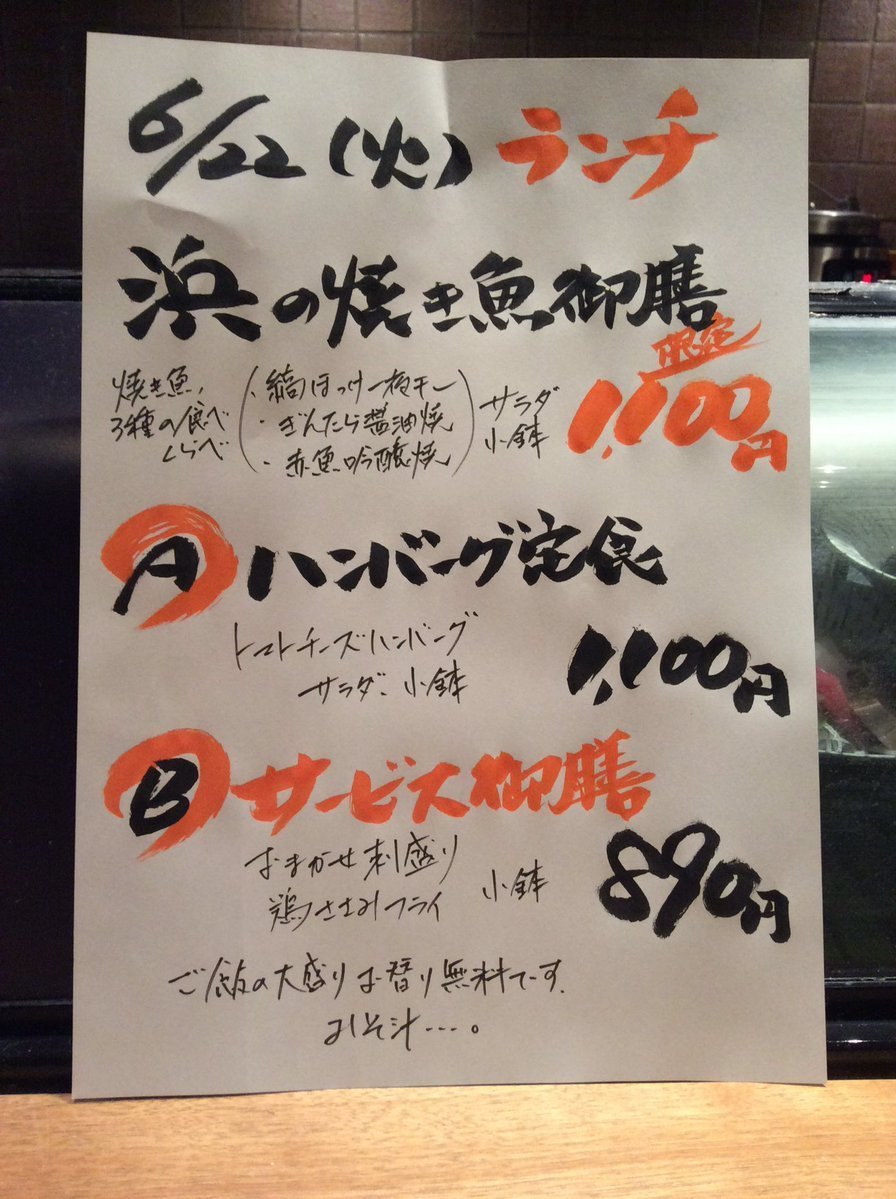 6/22(火)ランチ
浜の焼き魚御膳
限定
1,100円
焼き魚、
3種の食べ
くらべ
・縞ほっけ一夜干し
・ぎんたら醤油焼
・赤魚吟醸焼
サラダ
小鉢
A ハンバーグ定食
トマトチーズハンバーグ
サラダ、小鉢
1,100円
B サービス御膳
おまかせ刺盛り
鶏ささみフライ
小鉢
890円
ご飯の大盛りお替り無料です。
みそ汁---。